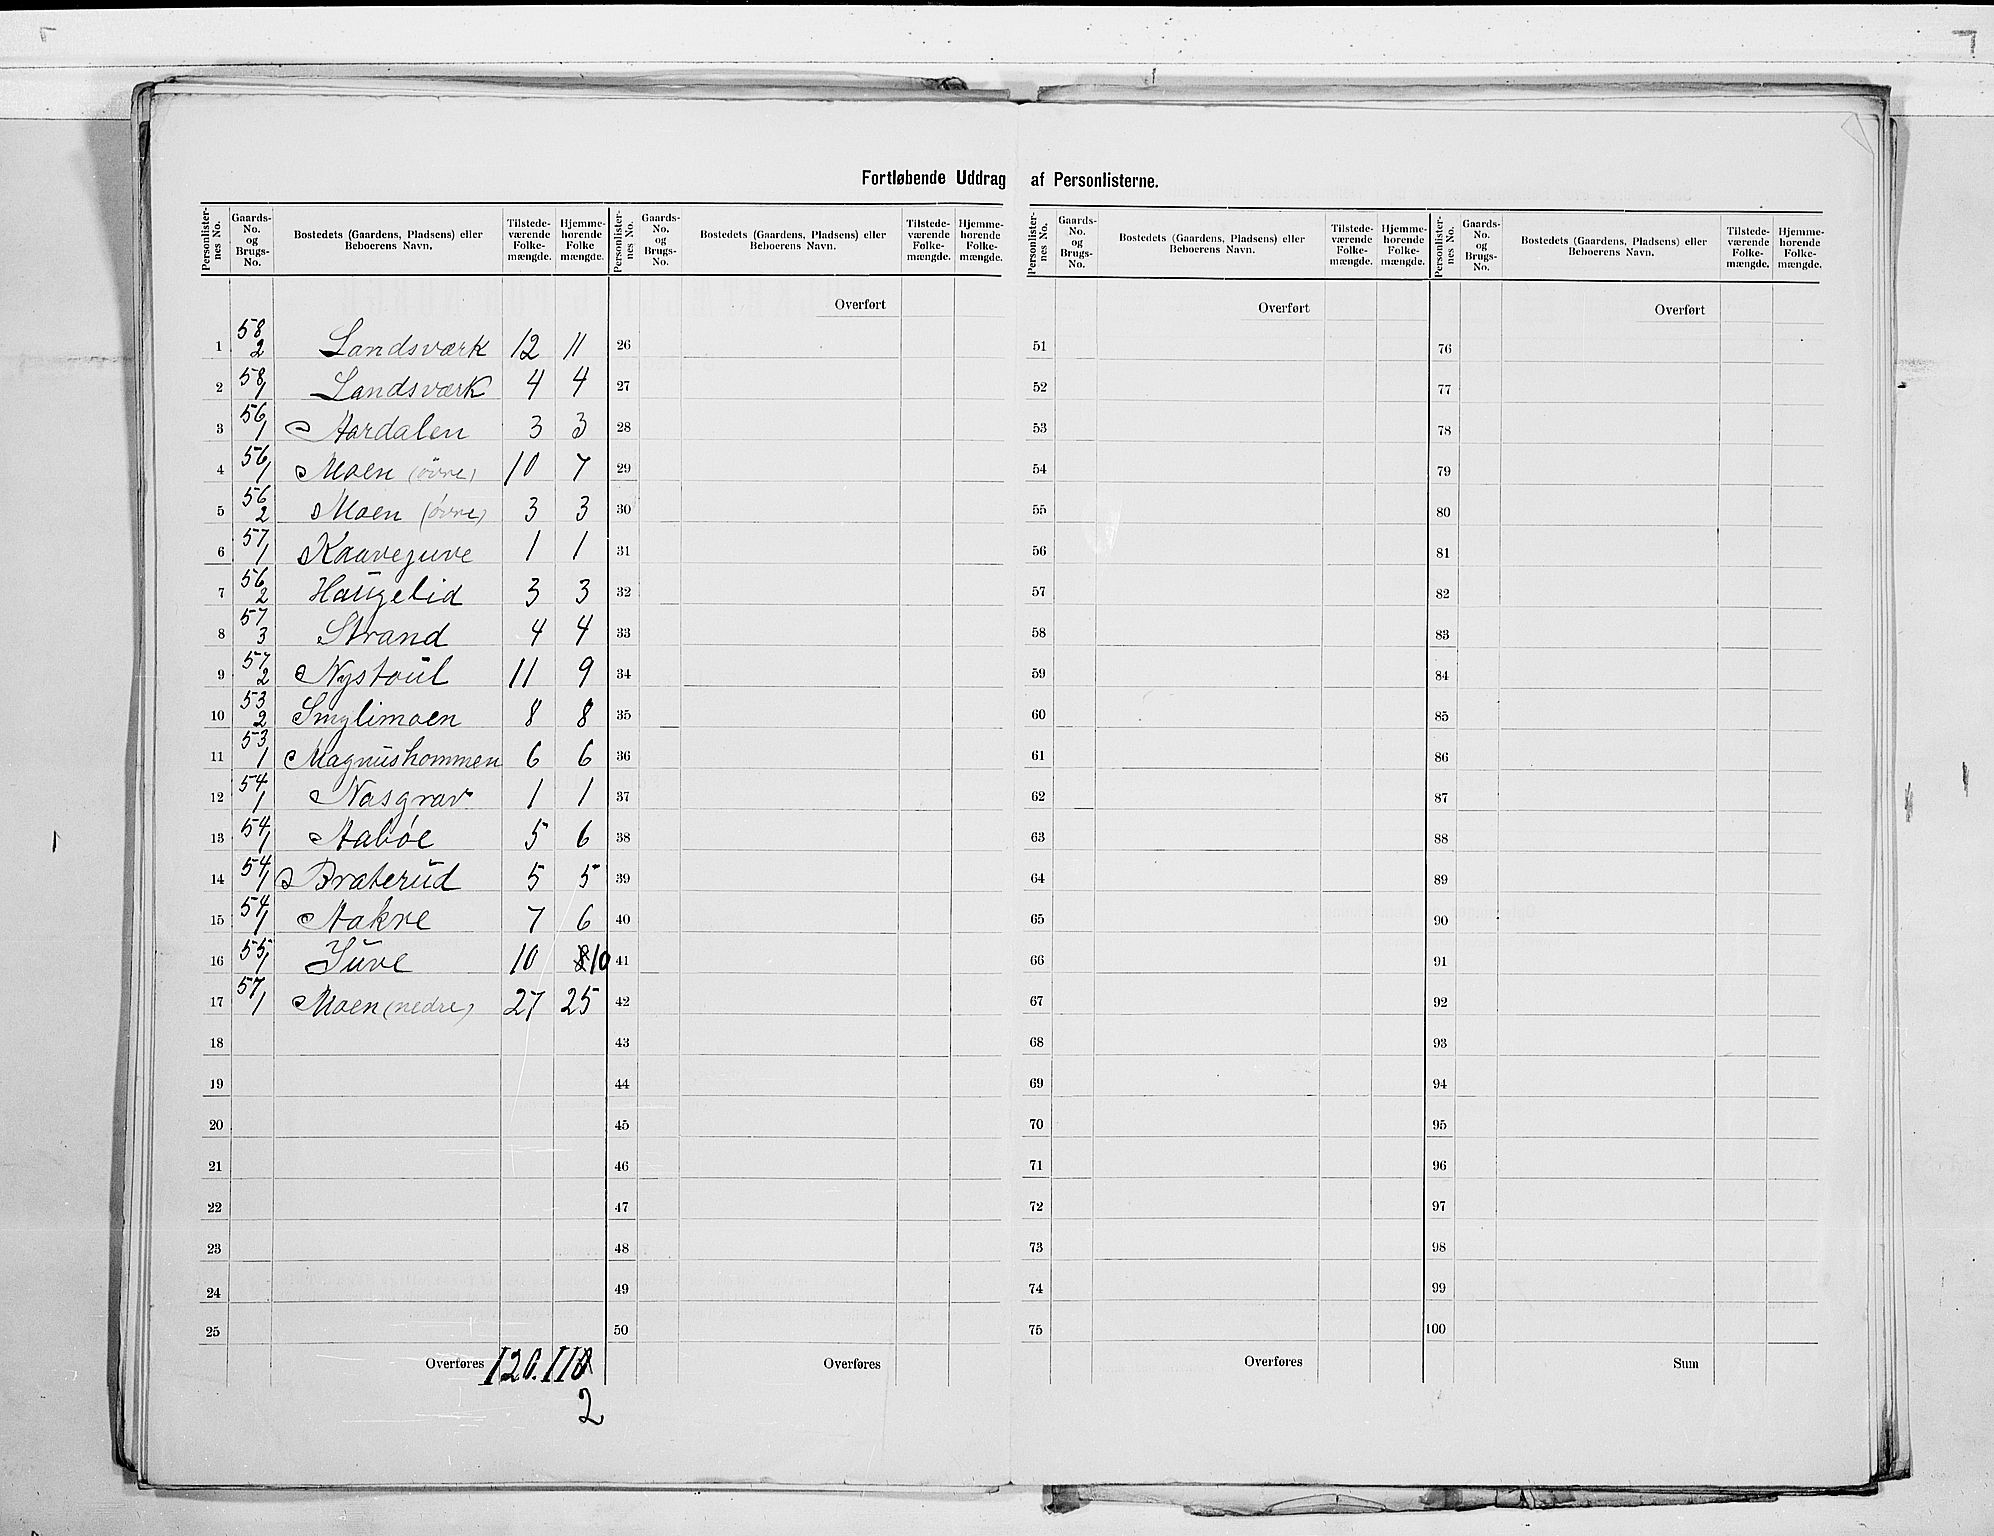 Fortløbende Uddrag af Personlisterne.
Personlister-nes No. | Gaards-No. og Brugs-No. | Bostedets (Gaardens, Pladsens) eller Beboerens Navn. | Tilstede-værende Folke-mængde. | Hjemme-hørende Folke mængde.
1 58/2 Landsværk 12 11
2 58/1 Landsværk 4 4
3 56/1 Aardalen 3 3
4 56/1 Moen (övre) 10 7
5 56/2 Moen (övre) 3 3
6 57/1 Kaavejuve 1 1
7 56/2 Haugelid 3 3
8 57/3 Strand 4 4
9 57/2 Nystoul 11 9
10 53/2 Smylimoen 8 8
11 53/1 Magnushommen 6 6
12 54/1 Nasgrav 1 1
13 54/1 Aabøe 5 6
14 54/1 Braterud 5 5
15 54/1 Aakre 7 6
16 55/1 Juve 10 8 10
17 57/1 Moen (nedre) 27 25
18
19
20
21
22
23
24
25
Overføres 120. 110
2
Personlister-nes No. | Gaards-No. og Brugs-No. | Bostedets (Gaardens, Pladsens) eller Beboerens Navn. | Tilstede-værende Folke-mængde. | Hjemme-hørende Folke-mængde.
Overført
26
27
28
29
30
31
32
33
34
35
36
37
38
39
40
41
42
43
44
45
46
47
48
49
50
Overføres
Personlister-nes No. | Gaards-No. og Brugs-No. | Bostedets (Gaardens, Pladsens) eller Beboerens Navn. | Tilstede-værende Folke-mængde. | Hjemme-hørende Folke-mængde.
Overført
51
52
53
54
55
56
57
58
59
60
61
62
63
64
65
66
67
68
69
70
71
72
73
74
75
Overføres
Personlister-nes No. | Gaards-No. og Brugs-No. | Bostedets (Gaardens, Pladsens) eller Beboerens Navn. | Tilstede-værende Folke-mængde. | Hjemme-hørende Folke-mængde.
Overført
76
77
78
79
80
81
82
83
84
85
86
87
88
89
90
91
92
93
94
95
96
97
98
99
100
Sum